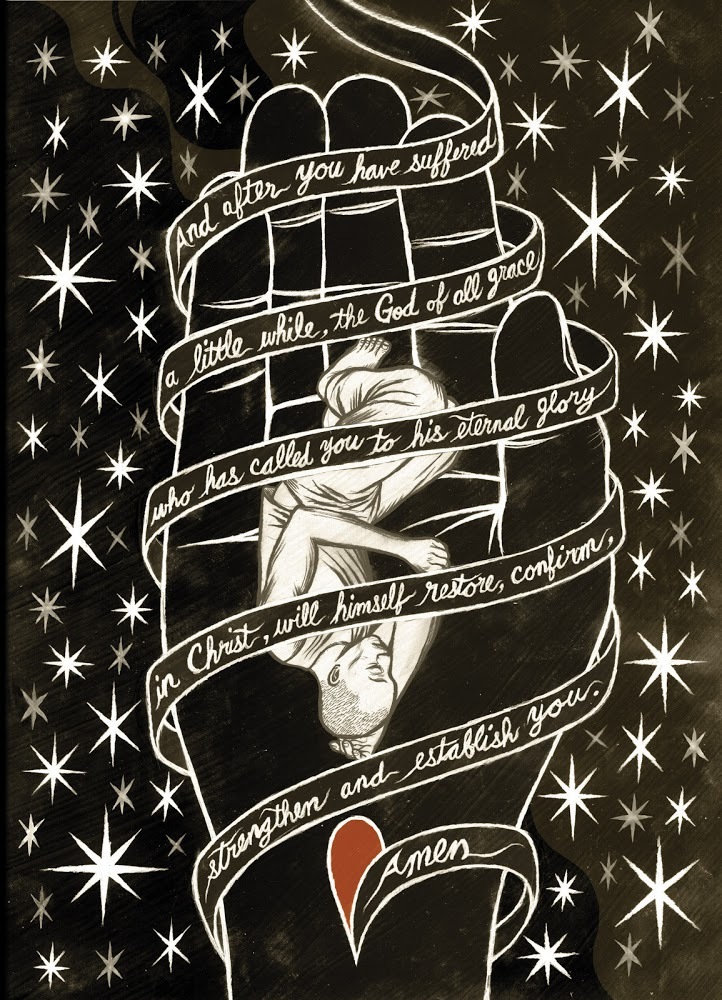 And after you have suffered
a little while, the God of all grace
who has called you to his eternal glory
in Christ, will himself restore, confirm,
strengthen and establish you.
Amen